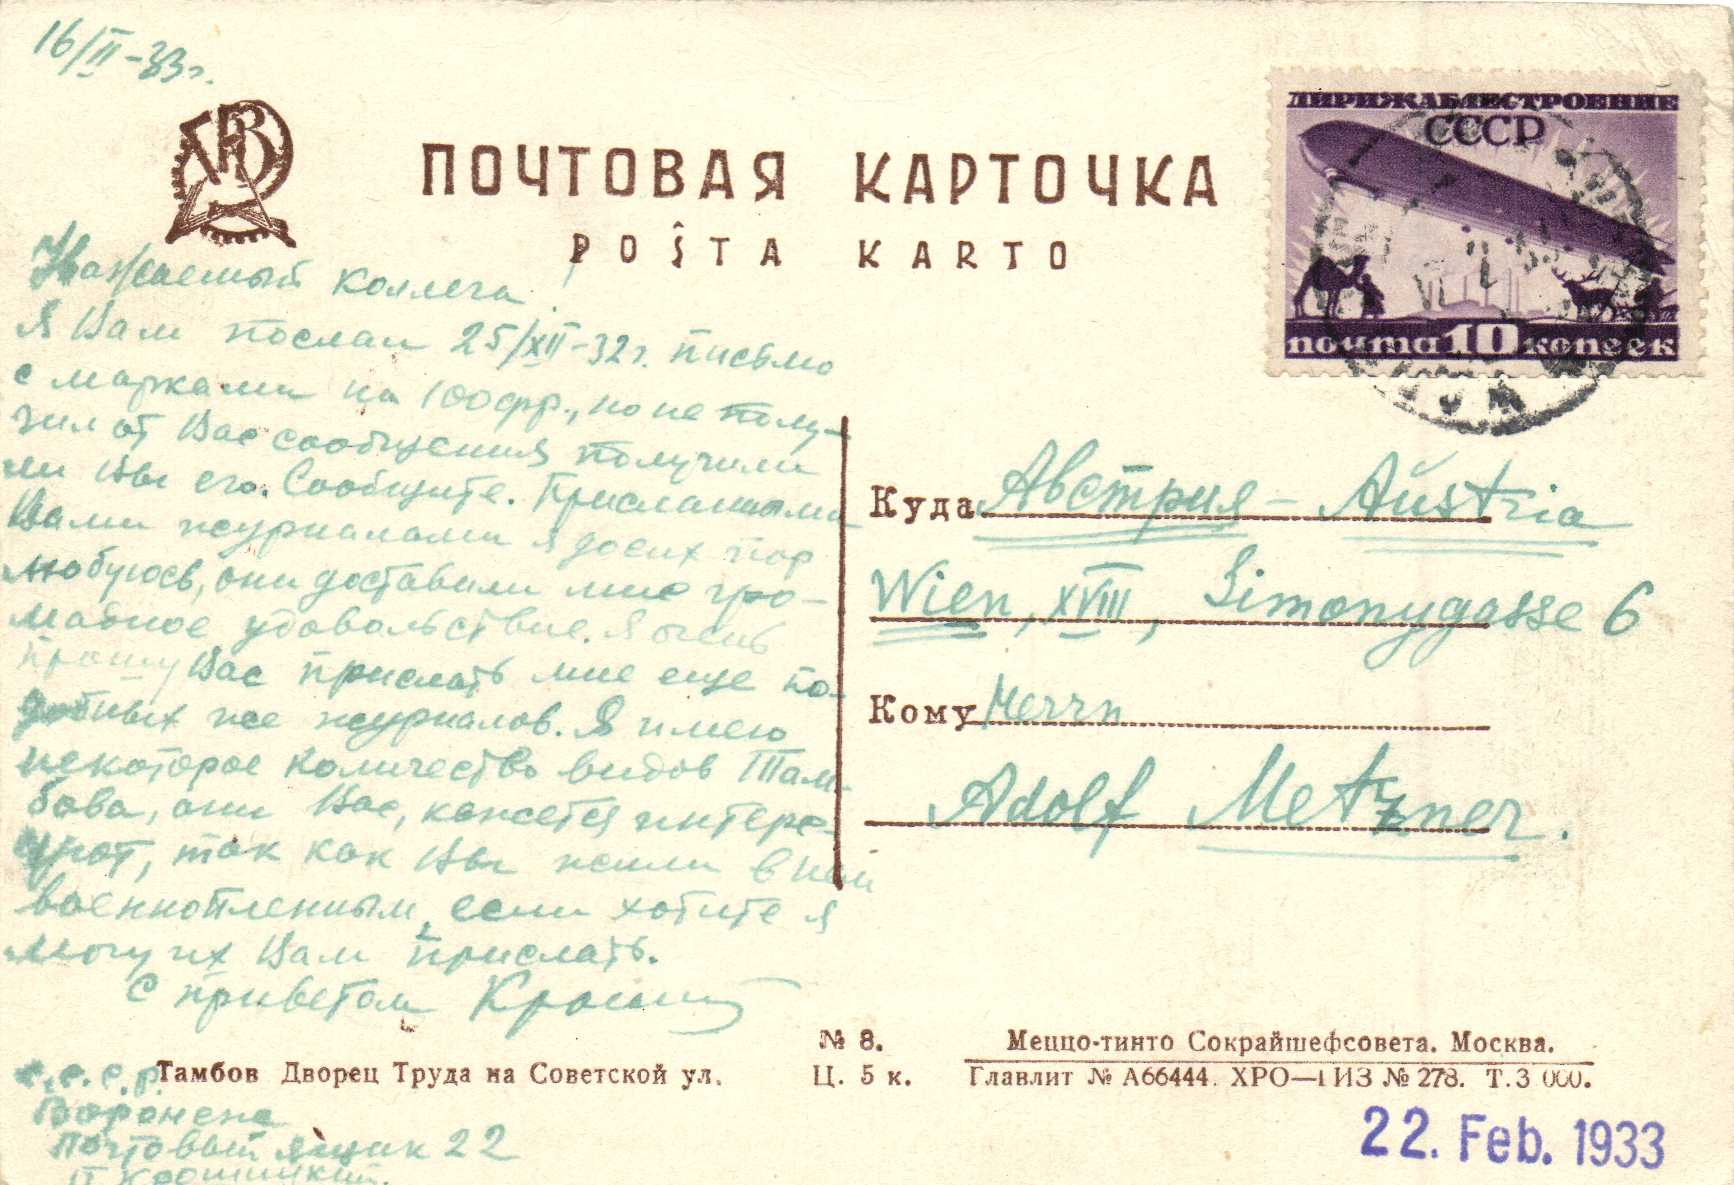 16/II-33г.
ПОЧТОВАЯ КАРТОЧКА
POŜTA KARTO
ДИРИЖАБЛЕСТРОЕНИЕ
СССР
почта 10 копеек
Уважаемый коллега!
Я Вам послал 25/XII-32г. письмо
с марками на 100 фр., но не полу-
чил от Вас сообщения получили
ли Вы его. Сообщите. Присланными
Вами журналами я до сих пор
любуюсь, они доставили мне гро-
мадное удовольствие. Я очень
прошу Вас прислать мне еще по-
добных же журналов. Я имею
некоторое количество видов Там-
бова, они Вас, кажется интере-
суют, так как Вы жили в нем
военнопленным, если хотите я
могу их Вам прислать.
С приветом
Куда Австрия - Austria
Wien, XVIII, Simonygasse 6
Кому Herrn
Adolf Metzner.
№ 8.
Ц. 5 к.
Меццо-тинто Сокрайшефсовета. Москва.
Главлит № А66444. ХРО—ГИЗ № 278. Т. 3 000.
Тамбов Дворец Труда на Советской ул.
с.с.с.р.
Воронеж
Почтовый ящик 22
22. Feb. 1933